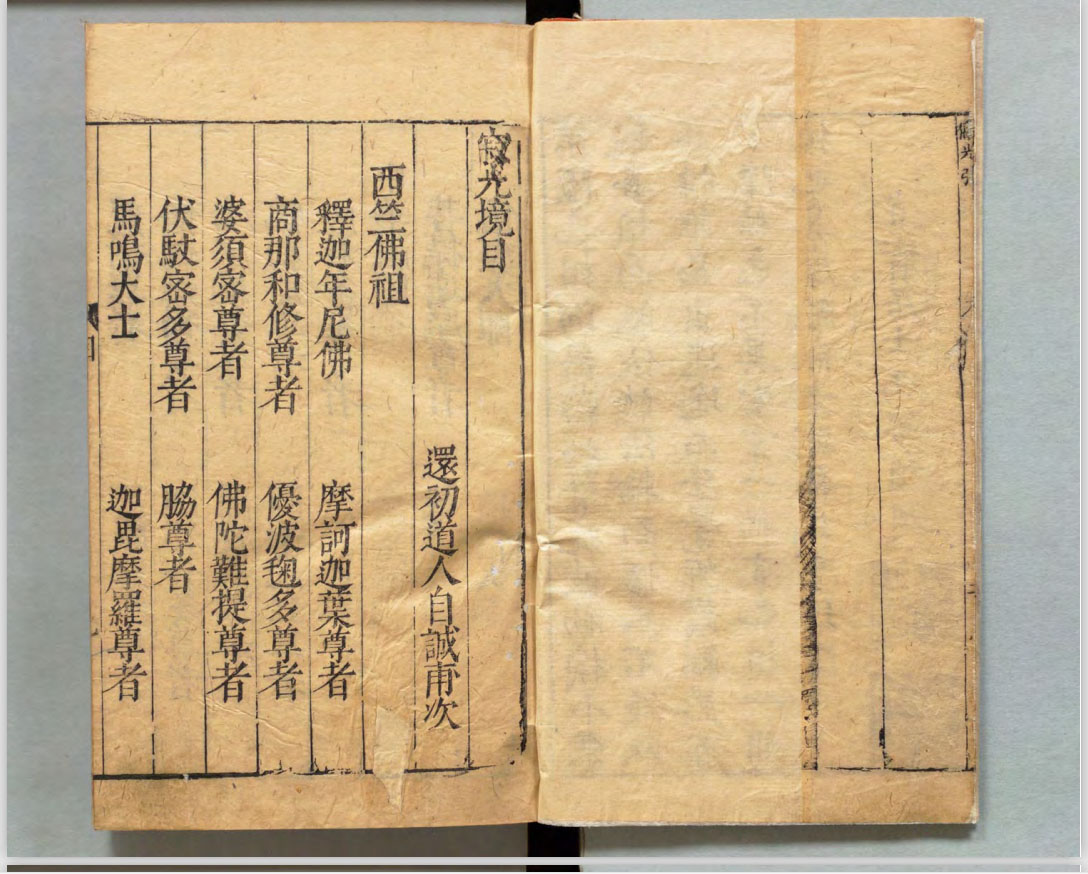 寂光境目
還初道人自誠甫次
西竺佛祖
釋迦年尼佛 摩訶迦葉尊者
商那和修尊者 優波毱多尊者
婆須宻尊者 佛陀難提尊者
伏馱宻多尊者 脇尊者
馬鳴大士 迦毘摩羅尊者